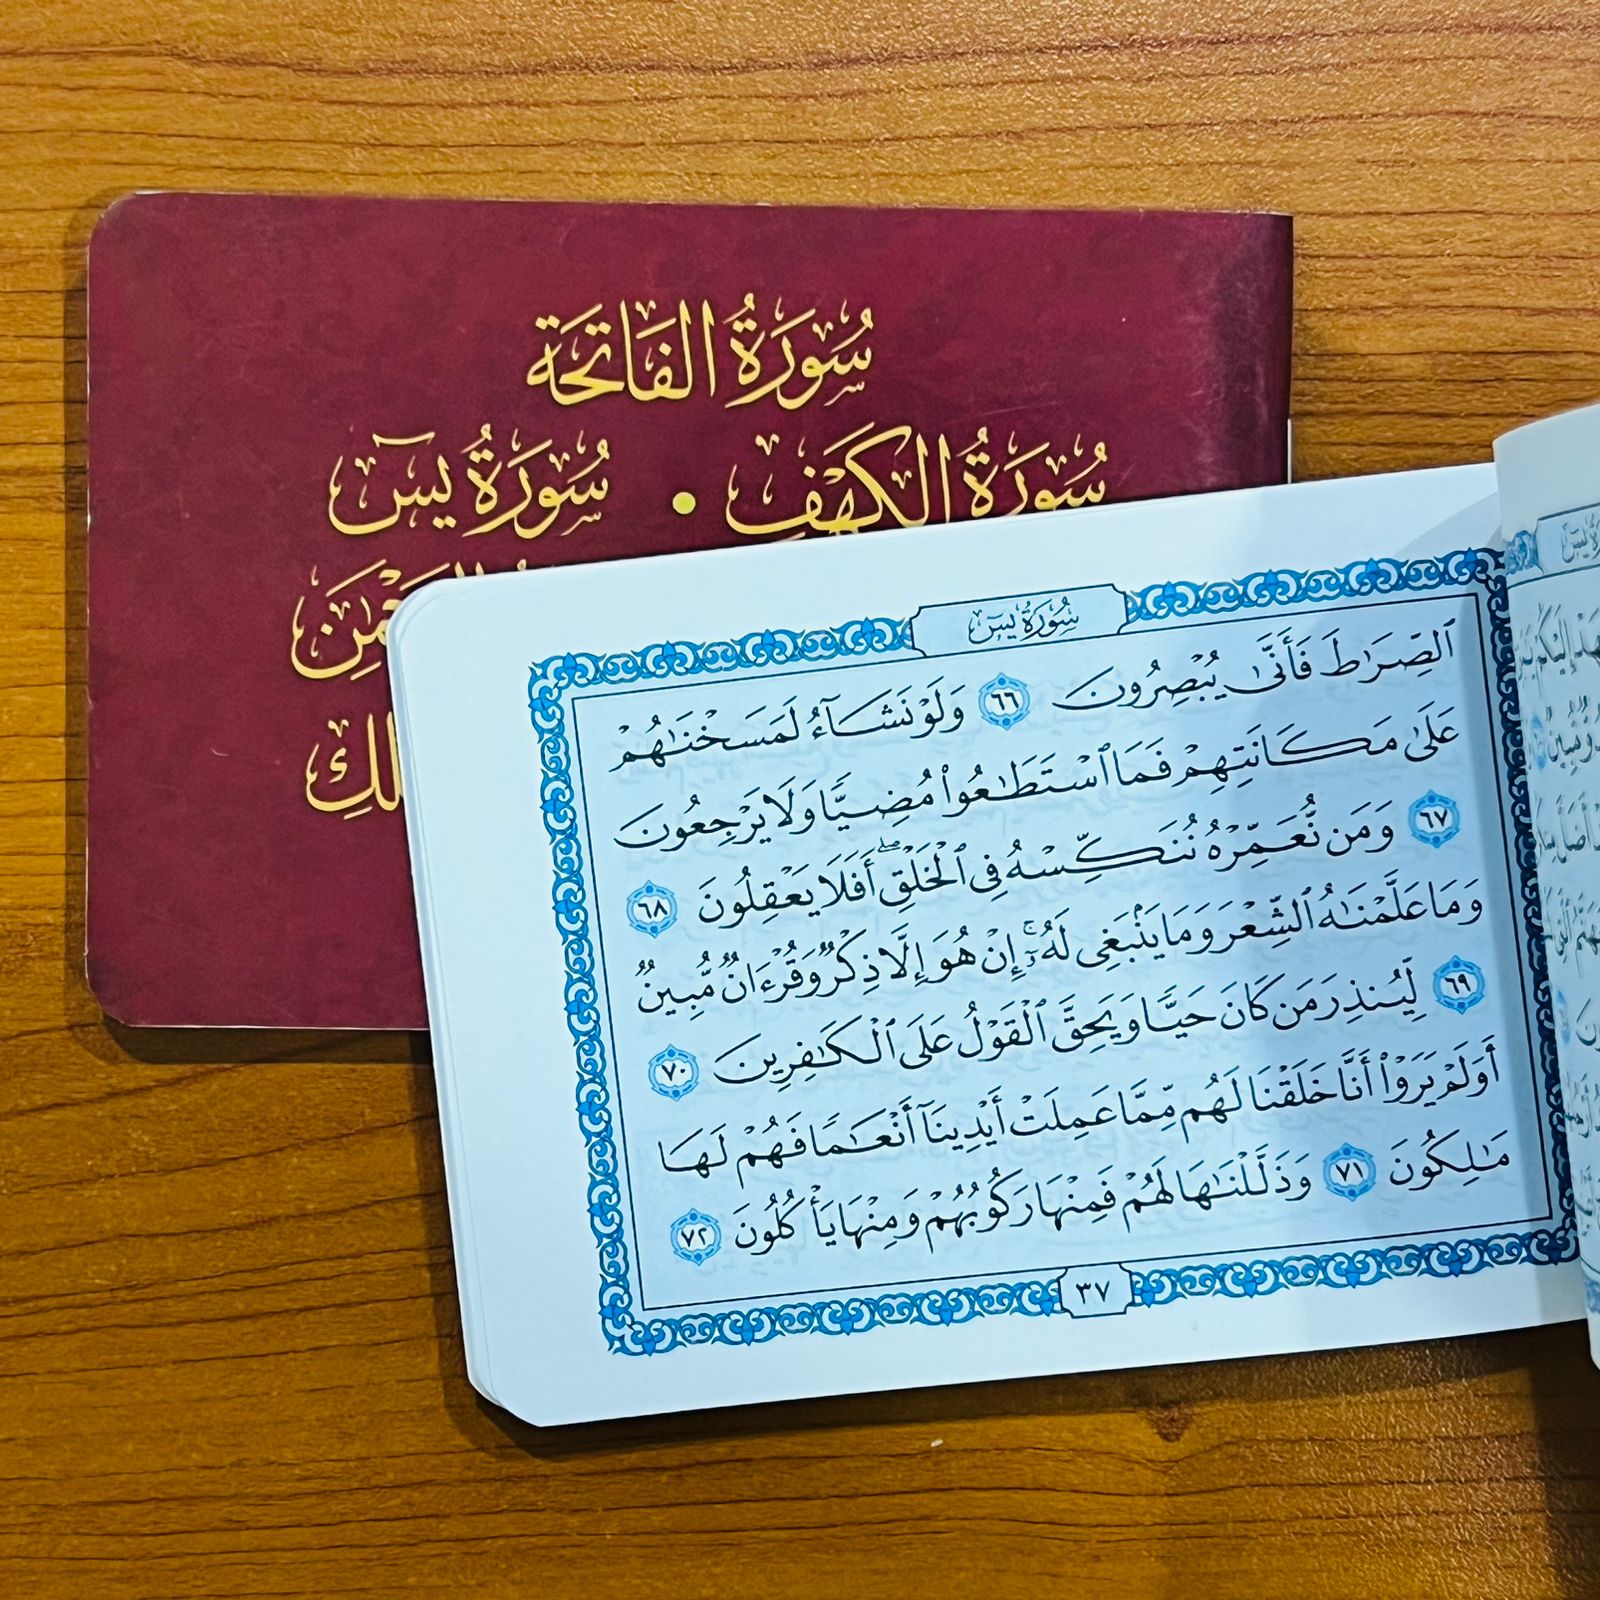 سُورَةُ الفَاتِحَة
سُورَةُ الكَهَفِ • سُورَةُ يسٓ
سُورَةُ يسٓ
ٱلصِّرَٰطَ فَأَنَّىٰ يُبْصِرُونَ ٦٦ وَلَوْ نَشَآءُ لَمَسَخْنَٰهُمْ
عَلَىٰ مَكَانَتِهِمْ فَمَا ٱسْتَطَٰعُوا۟ مُضِيًّا وَلَا يَرْجِعُونَ
٦٧ وَمَن نُّعَمِّرْهُ نُنَكِّسْهُ فِى ٱلْخَلْقِ ۖ أَفَلَا يَعْقِلُونَ ٦٨
وَمَا عَلَّمْنَٰهُ ٱلشِّعْرَ وَمَا يَنۢبَغِى لَهُۥٓ ۚ إِنْ هُوَ إِلَّا ذِكْرٌ وَقُرْءَانٌ مُّبِينٌ
٦٩ لِّيُنذِرَ مَن كَانَ حَيًّا وَيَحِقَّ ٱلْقَوْلُ عَلَى ٱلْكَٰفِرِينَ ٧٠
أَوَلَمْ يَرَوْا۟ أَنَّا خَلَقْنَا لَهُم مِّمَّا عَمِلَتْ أَيْدِينَآ أَنْعَٰمًا فَهُمْ لَهَا
مَٰلِكُونَ ٧١ وَذَلَّلْنَٰهَا لَهُمْ فَمِنْهَا رَكُوبُهُمْ وَمِنْهَا يَأْكُلُونَ ٧٢
٣٧